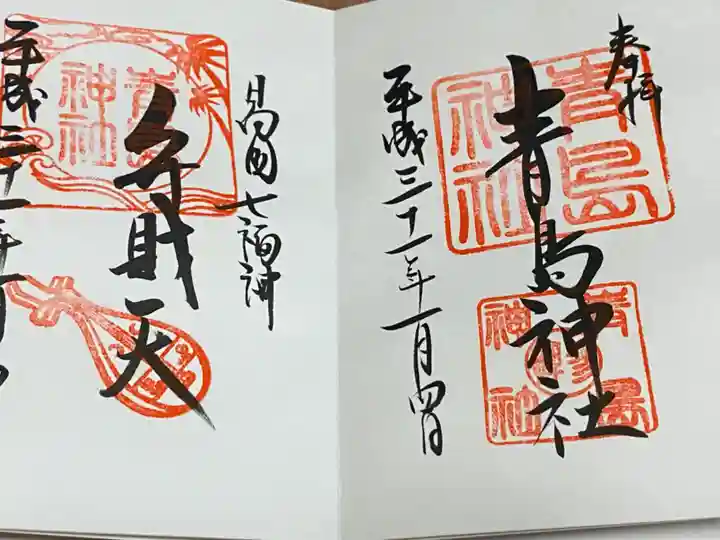 奉拝
青島神社
平成三十一年一月四日
青島神社
青島神社
日向七福神
弁財天
平成三十一年一月
青島神社